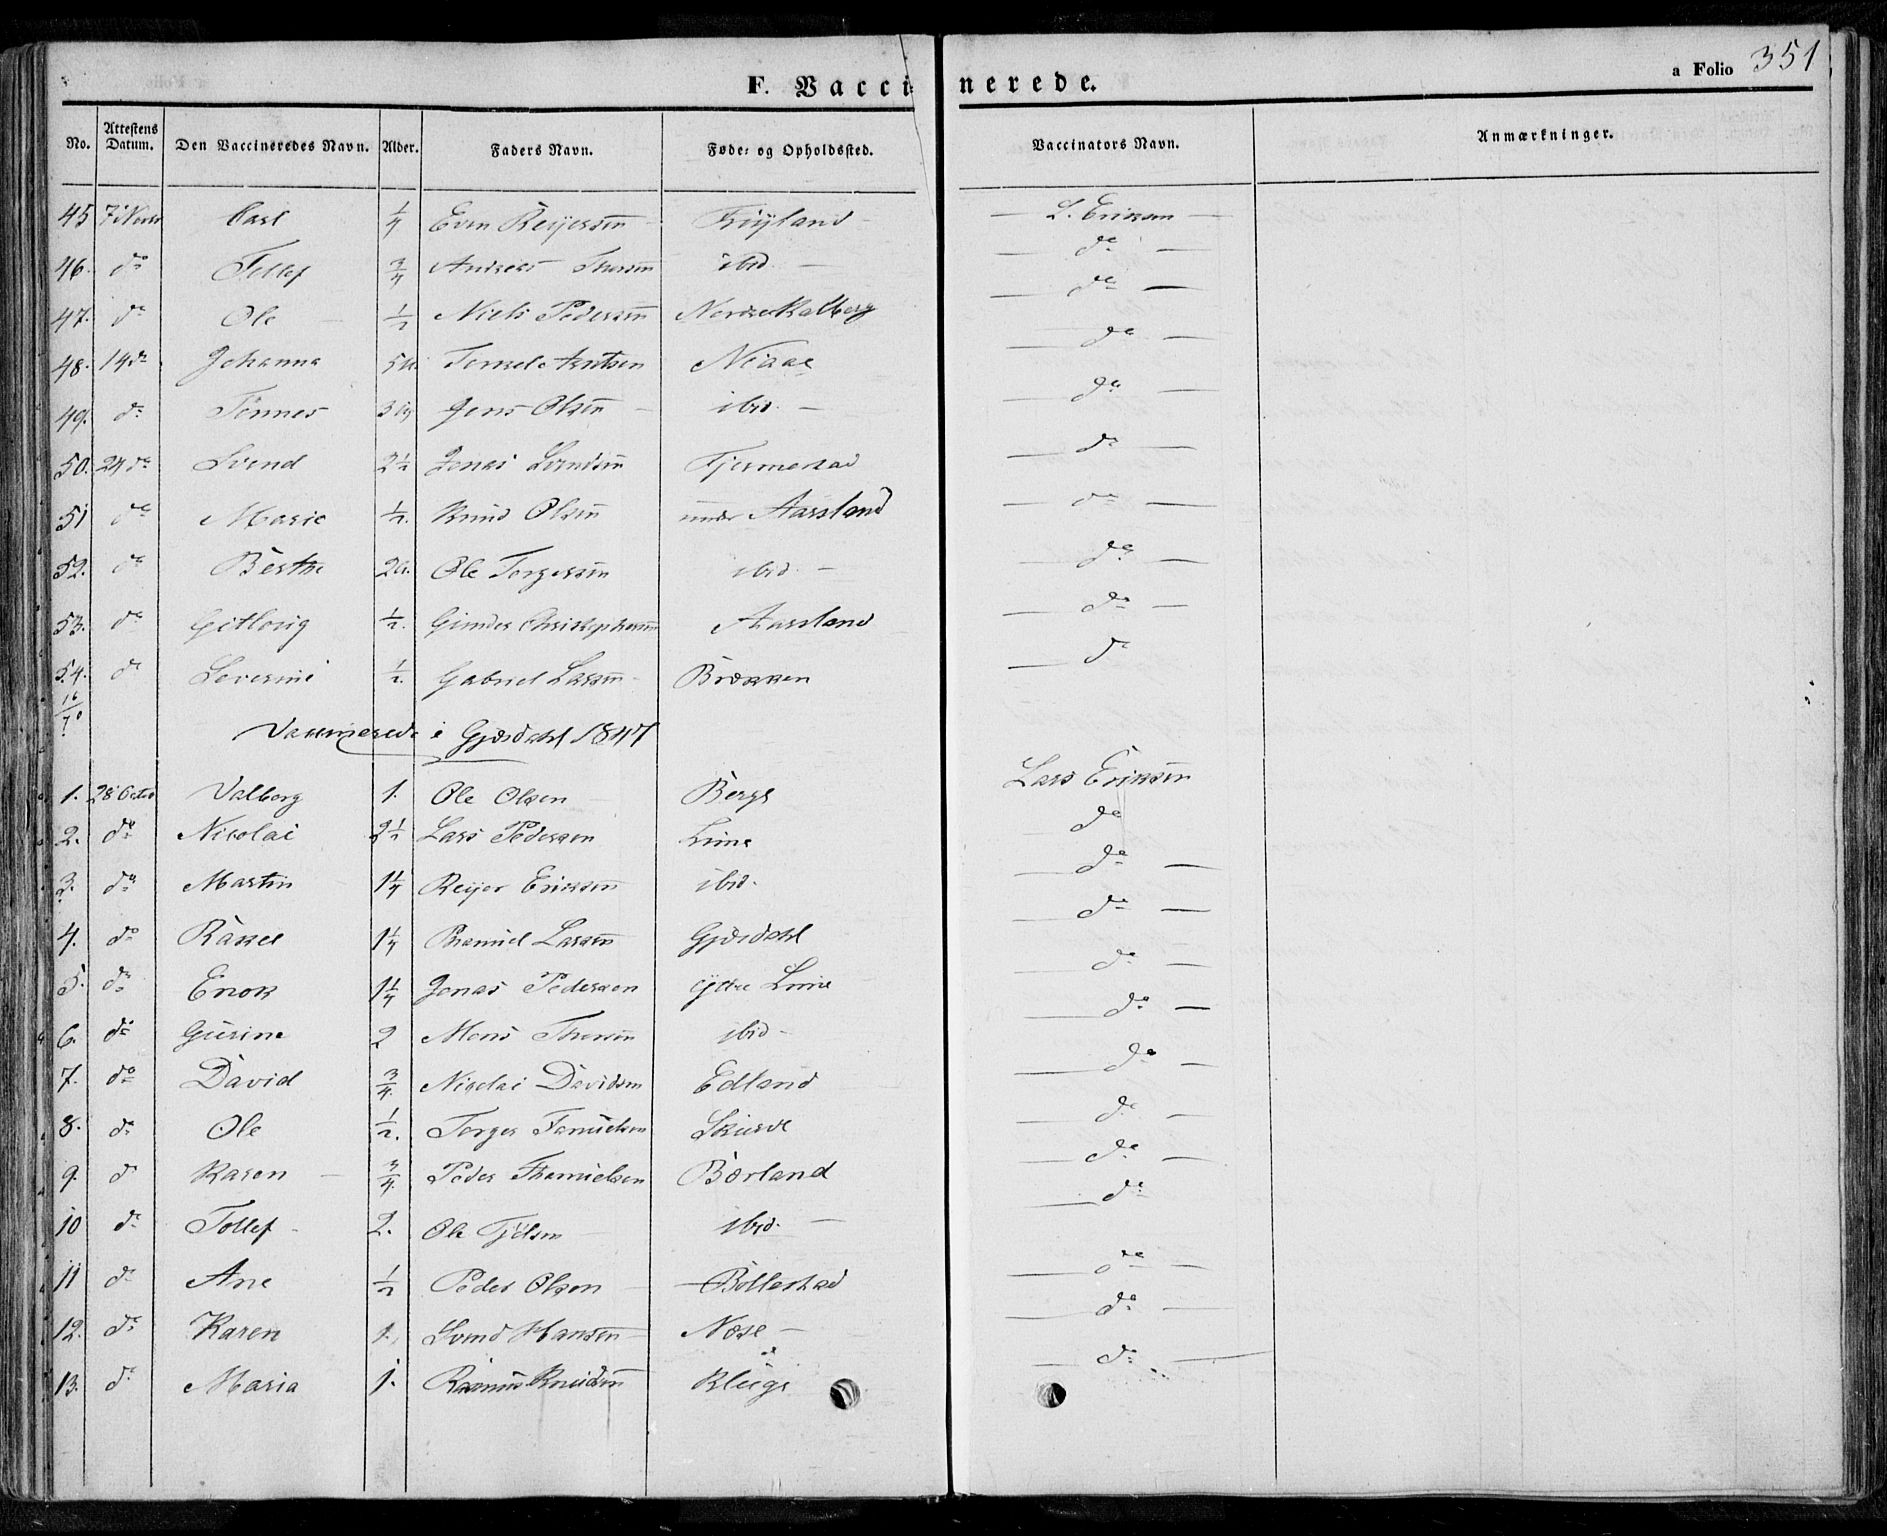 a Folio 351
F. Vaccinerede.
No. Attestens Datum. Den Vaccineredes Navn. Alder. Faders Navn. Føde- og Opholdssted. Vaccinators Navn. Anmærkninger.
45 7 Novbr Carl 1/4 Even Reijersen Friyland — L. Eriksen —
46. do Tollef 3/4 Andreas Thorsen ibid. — do —
47. do Ole 1/2 Niels Pedersen Nordre Kalberg do —
48. 14 do Johanna 5 U. Torkel Arntsen Niaae do —
49. do Tønnes Jens Olsen ibid. — do —
50. 24 do Svend 2 1/2 Jonas Svendsen Tjermestad do —
51 do Marie 1/2. Knud Olsen under Aarsland do —
52. do Berthe 2 a. Ole Torgersen ibid. — do —
53. do Gitlorig 1/2. Gunder Christophersen Aarsland do —
54. do Severine 1/2. Gabriel Larsen Brækken do
16/70
Vaccinerede i Gjesdahl 1847
1. 28 Octob Valborg 1. Ole Olsen Berge Lars Eriksen
2. do Nicolai 2 1/2 Lars Pedersen Lime do
3. do Martin 1 1/4 Reijer Eriksen ibid. do —
4. do Rakel 1 1/4 Larsen Gjesdahl do —
5. do Enok 1 1/4 Jonas Pedersen ytre Lime do —
6. do Gurine 2 Mons Thorsen ibid — do —
7. do David 3/4. Nicolai Davidsen Edland do —
8. do Ole 1/2. Torger Tamielsen Skurve do —
9. do Karen 3/4. Peder Thamielsen Bærland do —
10 do Tollef 2. Ole Tjølsen ibid. — do
11 do Ane 1/2 Peder Olsen Bollestad do —
12. do Karen 1. Svend Hansen Næse — do —
13. do Maria 1. Rasmus Knudsen Kluge do —